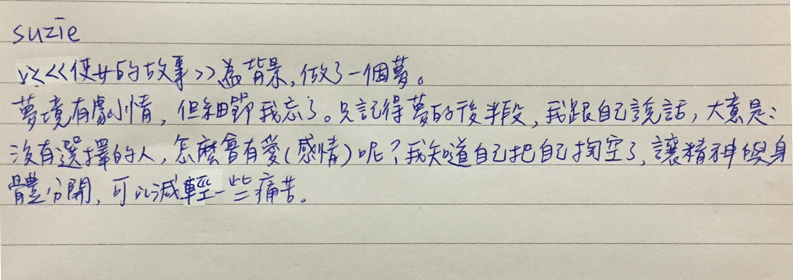 suzie
以<<使女的故事>>為背景，做了一個夢。
夢境有劇情，但細節我忘了。只記得夢的後半段，我跟自己說話，大意是：
沒有選擇的人，怎麼會有愛(感情)呢？我知道自己把自己掏空了，讓精神與身
體分開，可以減輕一些痛苦。